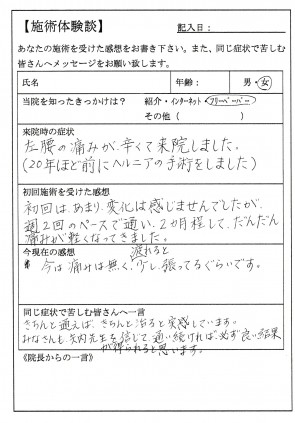 【施術体験談】 記入日：
あなたの施術を受けた感想をお書き下さい。また、同じ症状で苦しむ
皆さんへメッセージをお願い致します。
氏名 年齢： 男・女
当院を知ったきっかけは？ 紹介・インターネット・フリーペーパー
その他（ ）
来院時の症状
左腰の痛みが辛くて来院しました。
（20年ほど前にヘルニアの手術をしました）
初回施術を受けた感想
初回は、あまり、変化は感じませんでしたが、
週2回のペースで通い、2カ月程して、だんだん
痛みが軽くなってきました。
今現在の感想
疲れると
今は痛みは無く、少し張ってるぐらいです。
同じ症状で苦しむ皆さんへ一言
きちんと通えば、きちんと治ると実感しています。
みなさんも、矢内先生を信じて、通い続ければ、必ず良い結果
が得られると思います。
《院長からの一言》